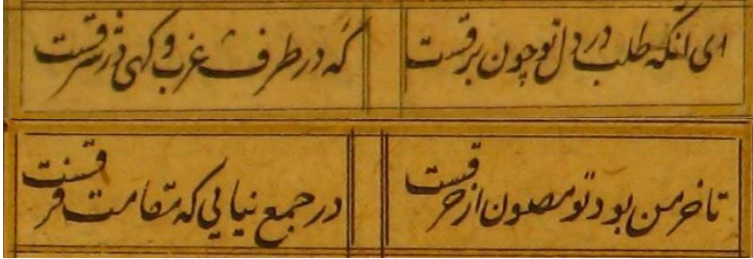 ای آنکه طلب در دل تو چون برقست
گه در طرف غرب و کهی در شرقست
تا خرمن بود تو مصون از حرقست
در جمع نیایی که مقامت فرقست